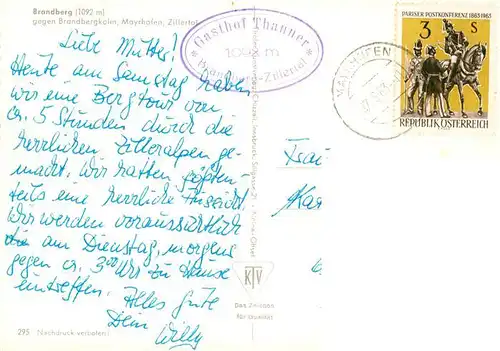 Brandberg (1092 m)
gegen Brandbergkolm, Mayrhofen, Zillertal
Liebe Mutter!
Heute am Samstag haben
wir eine Bergtour von
ca. 5 Stunden durch die
herrlichen Zilleralpen ge-
macht. Wir hatten größten-
teils eine herrliche Aussicht.
Wir werden voraussichtlich
die am Dienstag, morgens
gegen ca. 3:00 Uhr zu Hause
eintreffen. Alles Gute
Dein
Willy
295 Nachdruck verboten!
* Gasthof Thanner *
1092 m
Brandberg-Zillertal
KTV
Das Zeichen
für Qualität
MAYRHOFEN
PARISER POSTKONFERENZ 1863-1963
3 S
REPUBLIK ÖSTERREICH